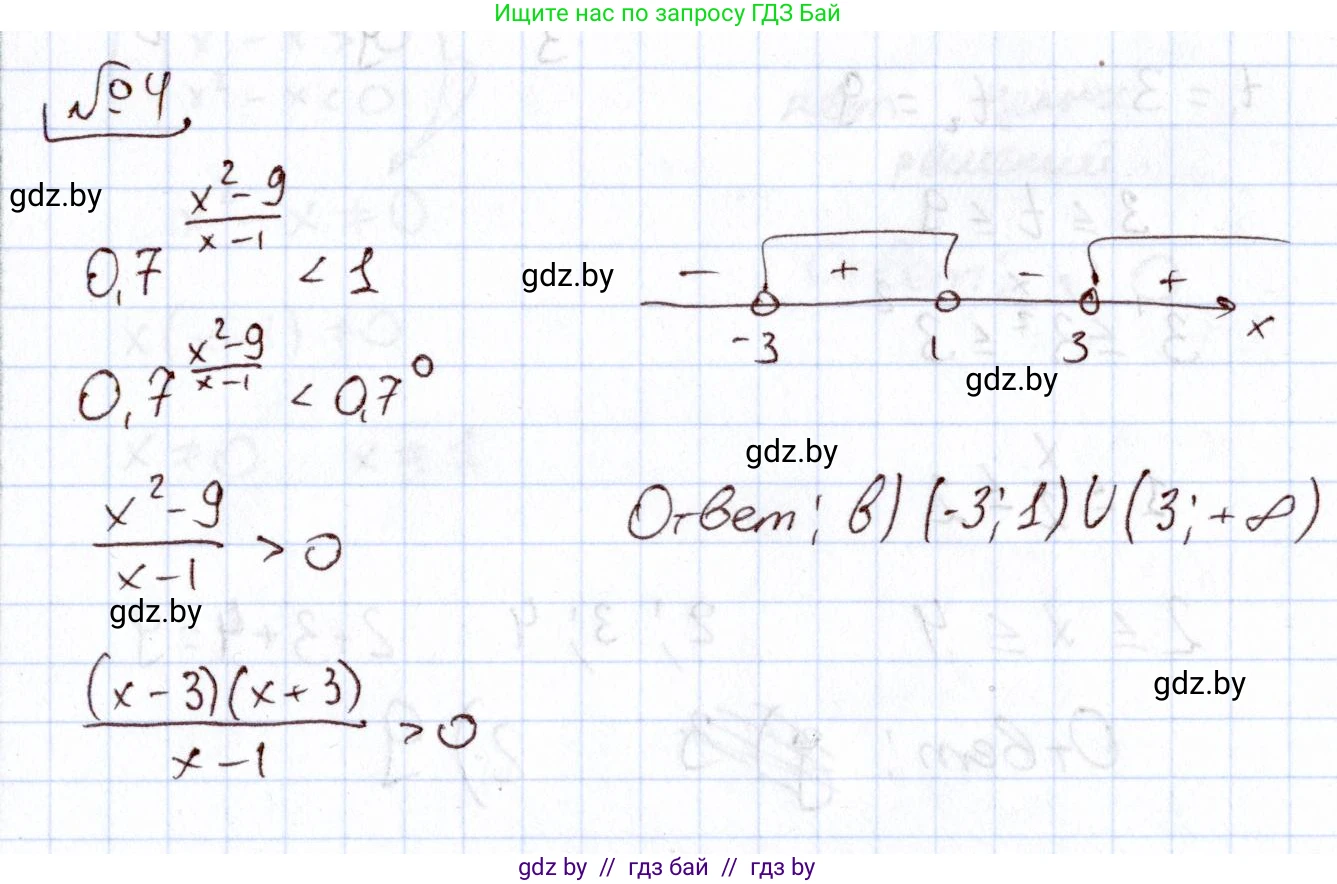 Ищите нас по запросу ГДЗ Бай
№4
gdz.by
0,7^((x²-9)/(x-1)) < 1
0,7^((x²-9)/(x-1)) < 0,7⁰
(x²-9)/(x-1) > 0
gdz.by
((x-3)(x+3))/(x-1) > 0
gdz.by
- + - +
-3 1 3 x
gdz.by
gdz.by
Ответ: в) (-3; 1) ∪ (3; +∞)
gdz.by
gdz by // гдз бай // гдз by